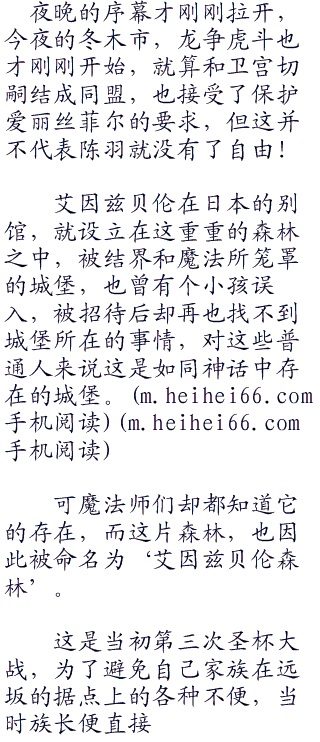 夜晚的序幕才刚刚拉开，
今夜的冬木市，龙争虎斗也
才刚刚开始，就算和卫宫切
嗣结成同盟，也接受了保护
爱丽丝菲尔的要求，但这并
不代表陈羽就没有了自由！
艾因兹贝伦在日本的别
馆，就设立在这重重的森林
之中，被结界和魔法所笼罩
的城堡，也曾有个小孩误
入，被招待后却再也找不到
城堡所在的事情，对这些普
通人来说这是如同神话中存
在的城堡。(m.heihei66.com
手机阅读)(m.heihei66.com
手机阅读)
可魔法师们却都知道它
的存在，而这片森林，也因
此被命名为‘艾因兹贝伦森
林’。
这是当初第三次圣杯大
战，为了避免自己家族在远
坂的据点上的各种不便，当
时族长便直接